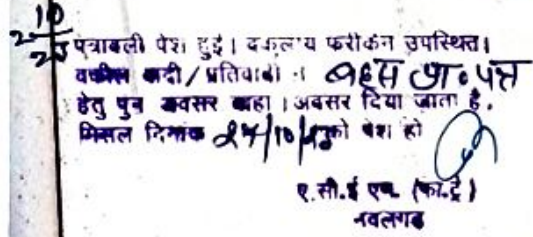 10
2
25
पत्रावली पेश हुई। वकलाय फरीकन उपस्थित।
वकील वादी/प्रतिवादी ने बहस प्रा॰ पत्र
हेतु पुन अवसर चाहा। अवसर दिया जाता है,
मिसल दिनांक 27/10/25 को पेश हो
ए.सी.ई एम (फा.ट्रे)
नवलगढ